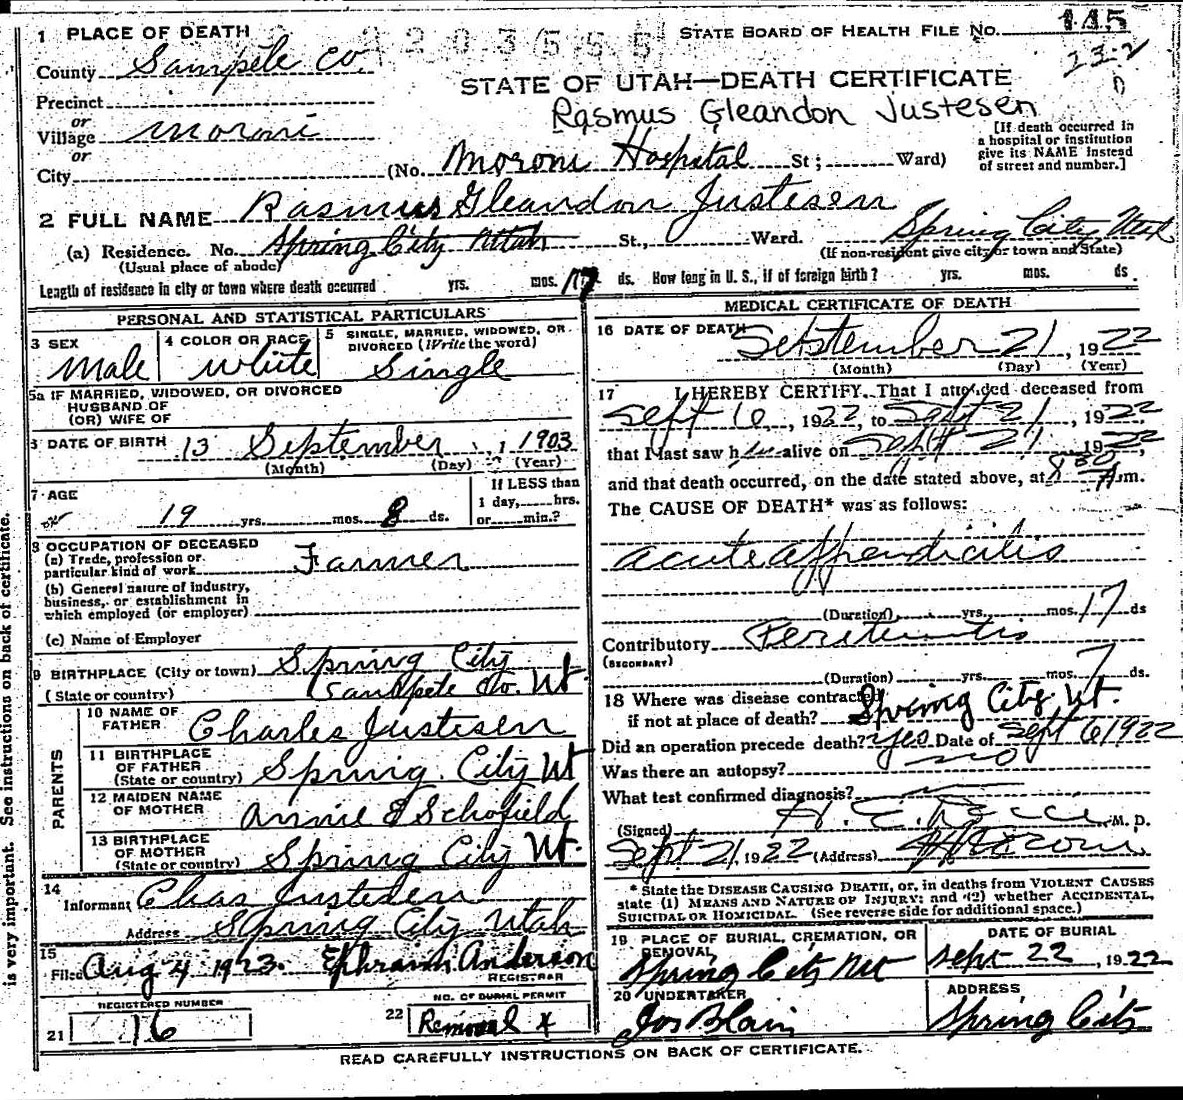 1 PLACE OF DEATH
1203555
STATE BOARD OF HEALTH FILE NO. 145
23-2
County Sanpete Co.
STATE OF UTAH—DEATH CERTIFICATE
Precinct
Rasmus Gleandon Justesen
or
Village Moroni
[If death occurred in a hospital or institution give its NAME instead of street and number.]
or
City (No. Moroni Hospital St; Ward)
2 FULL NAME Rasmus Gleandon Justesen
(a) Residence. No. Spring City Utah St., Ward. Spring City Utah
(Usual place of abode) (If non-resident give city or town and State)
Length of residence in city or town where death occurred yrs. mos. 17 ds. How long in U. S., if of foreign birth? yrs. mos. ds.
PERSONAL AND STATISTICAL PARTICULARS
3 SEX
Male
4 COLOR OR RACE
White
5 SINGLE, MARRIED, WIDOWED, OR DIVORCED (Write the word)
Single
5a IF MARRIED, WIDOWED, OR DIVORCED
HUSBAND OF
(OR) WIFE OF
6 DATE OF BIRTH 13 September, 1903
(Month) (Day) (Year)
7 AGE
19 yrs. mos. 8 ds.
If LESS than
1 day, hrs.
or min.?
8 OCCUPATION OF DECEASED
(a) Trade, profession or
particular kind of work Farmer
(b) General nature of industry,
business, or establishment in
which employed (or employer)
(c) Name of Employer
9 BIRTHPLACE (City or town) Spring City
(State or country) Sanpete Co. Ut.
PARENTS
10 NAME OF
FATHER Charles Justesen
11 BIRTHPLACE
OF FATHER
(State or country) Spring City Ut
12 MAIDEN NAME
OF MOTHER Annie E Schofield
13 BIRTHPLACE
OF MOTHER
(State or country) Spring City Ut.
14
Informant Chas Justesen
Address Spring City Utah
15
Filed Aug 4 1923. Ephraim Anderson
REGISTRAR
REGISTERED NUMBER
21 16
NO. OF BURIAL PERMIT
22 Removal 4
MEDICAL CERTIFICATE OF DEATH
16 DATE OF DEATH
September 21, 1922
(Month) (Day) (Year)
17 I HEREBY CERTIFY, That I attended deceased from
Sept 6, 1922, to Sept 21, 1922
that I last saw him alive on Sept 21 1922,
and that death occurred, on the date stated above, at 8 30 A m.
The CAUSE OF DEATH* was as follows:
acute appendicitis
(Duration) yrs. mos. 17 ds
Contributory Peritonitis
(SECONDARY)
(Duration) yrs. mos. 7 ds.
18 Where was disease contracted
if not at place of death? Spring City Ut.
Did an operation precede death? yes Date of Sept 6 1922
Was there an autopsy? no
What test confirmed diagnosis?
(Signed) M. D.
Sept 21, 1922 (Address) Moroni
* State the DISEASE CAUSING DEATH, or, in deaths from VIOLENT CAUSES
state (1) MEANS AND NATURE OF INJURY; and (2) whether ACCIDENTAL,
SUICIDAL OR HOMICIDAL. (See reverse side for additional space.)
19 PLACE OF BURIAL, CREMATION, OR
REMOVAL
Spring City Ut
DATE OF BURIAL
Sept 22, 1922
20 UNDERTAKER
Jos Blain
ADDRESS
Spring City
READ CAREFULLY INSTRUCTIONS ON BACK OF CERTIFICATE.
is very important. See instructions on back of certificate.